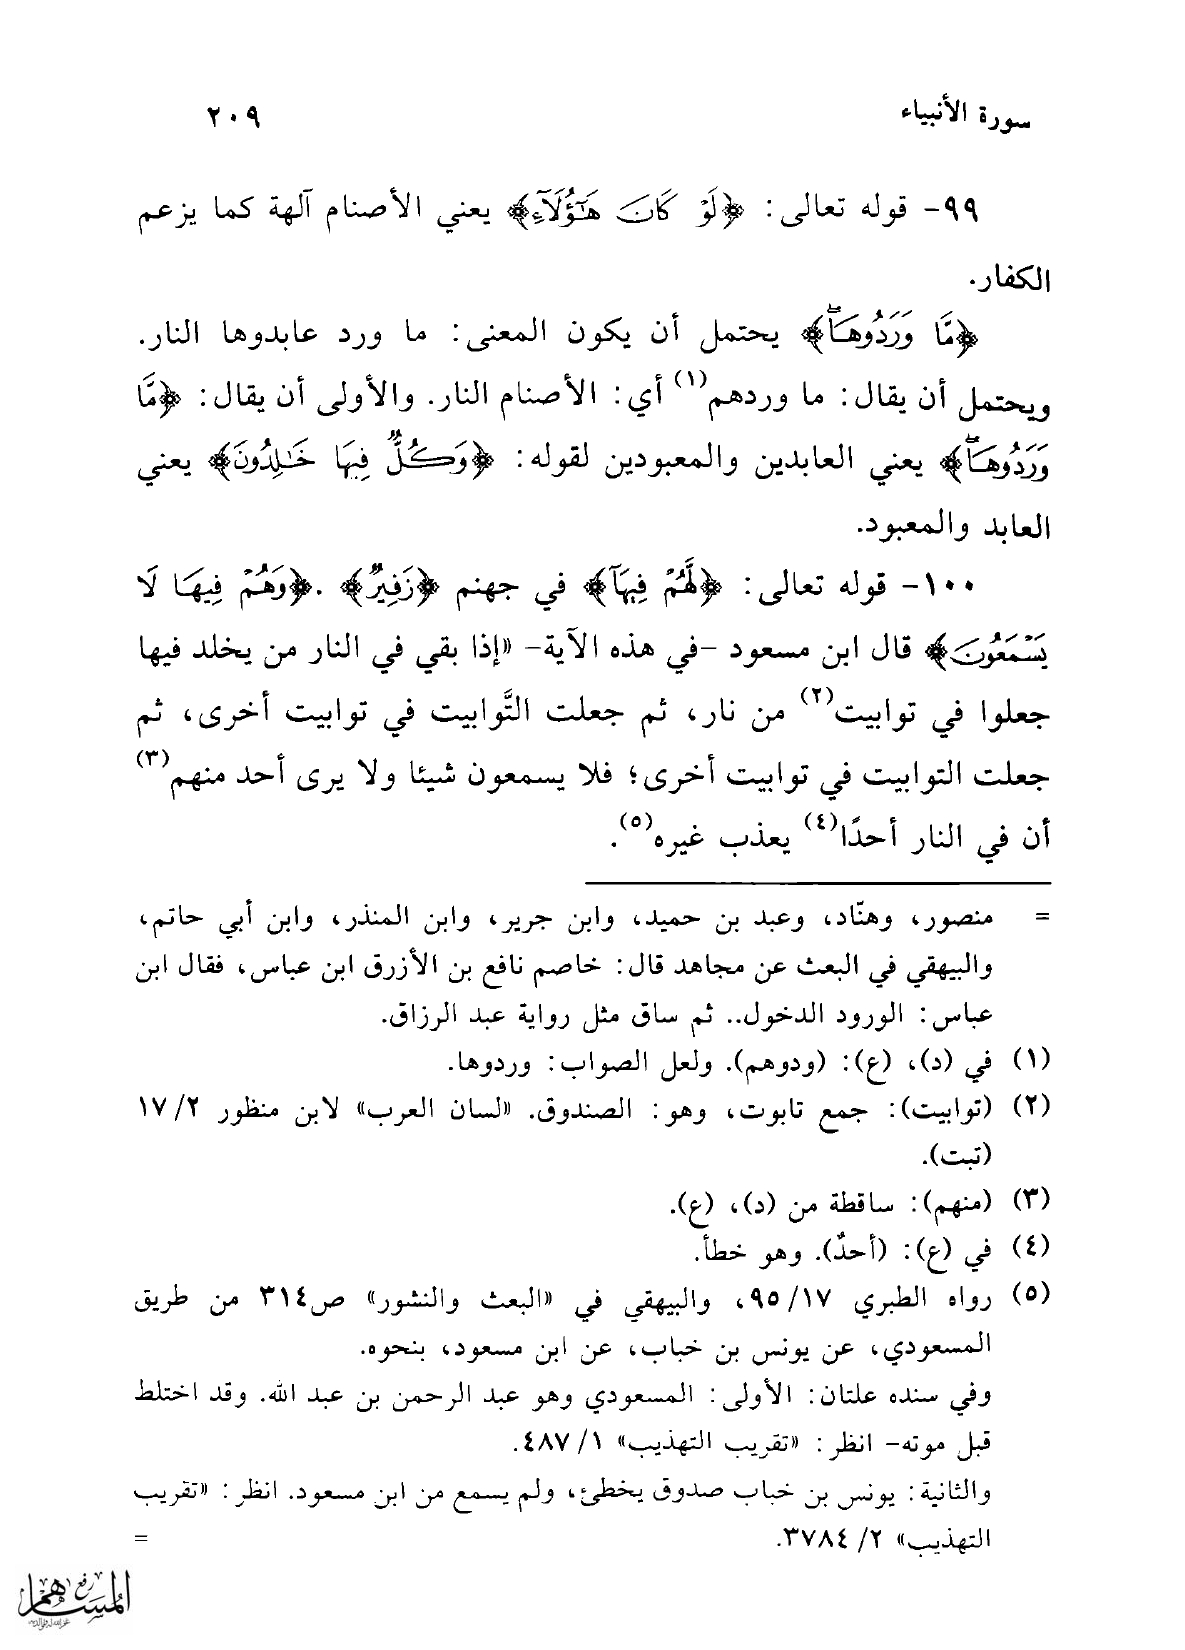 سورة الأنبياء ٢٠٩
٩٩- قوله تعالى: ﴿لَوْ كَانَ هَٰٓؤُلَآءِ﴾ يعني الأصنام آلهة كما يزعم
الكفار.
﴿مَّا وَرَدُوهَاۖ﴾ يحتمل أن يكون المعنى: ما ورد عابدوها النار.
ويحتمل أن يقال: ما وردهم(١) أي: الأصنام النار. والأولى أن يقال: ﴿مَّا
وَرَدُوهَاۖ﴾ يعني العابدين والمعبودين لقوله: ﴿وَكُلٌّ فِيهَا خَٰلِدُونَ﴾ يعني
العابد والمعبود.
١٠٠- قوله تعالى: ﴿لَهُمْ فِيهَآ﴾ في جهنم ﴿زَفِيرٌ﴾ .﴿وَهُمْ فِيهَا لَا
يَسْمَعُونَ﴾ قال ابن مسعود -في هذه الآية- «إذا بقي في النار من يخلد فيها
جعلوا في توابيت(٢) من نار، ثم جعلت التَّوابيت في توابيت أخرى، ثم
جعلت التوابيت في توابيت أخرى؛ فلا يسمعون شيئا ولا يرى أحد منهم(٣)
أن في النار أحدًا(٤) يعذب غيره(٥).
= منصور، وهنّاد، وعبد بن حميد، وابن جرير، وابن المنذر، وابن أبي حاتم،
والبيهقي في البعث عن مجاهد قال: خاصم نافع بن الأزرق ابن عباس، فقال ابن
عباس: الورود الدخول.. ثم ساق مثل رواية عبد الرزاق.
(١) في (د)، (ع): (ودوهم). ولعل الصواب: وردوها.
(٢) (توابيت): جمع تابوت، وهو: الصندوق. «لسان العرب» لابن منظور ٢/ ١٧
(تبت).
(٣) (منهم): ساقطة من (د)، (ع).
(٤) في (ع): (أحدٌ). وهو خطأ.
(٥) رواه الطبري ١٧/ ٩٥، والبيهقي في «البعث والنشور» ص٣١٤ من طريق
المسعودي، عن يونس بن خباب، عن ابن مسعود، بنحوه.
وفي سنده علتان: الأولى: المسعودي وهو عبد الرحمن بن عبد الله. وقد اختلط
قبل موته- انظر: «تقريب التهذيب» ١/ ٤٨٧.
والثانية: يونس بن خباب صدوق يخطئ، ولم يسمع من ابن مسعود. انظر: «تقريب
التهذيب» ٢/ ٣٧٨٤. =